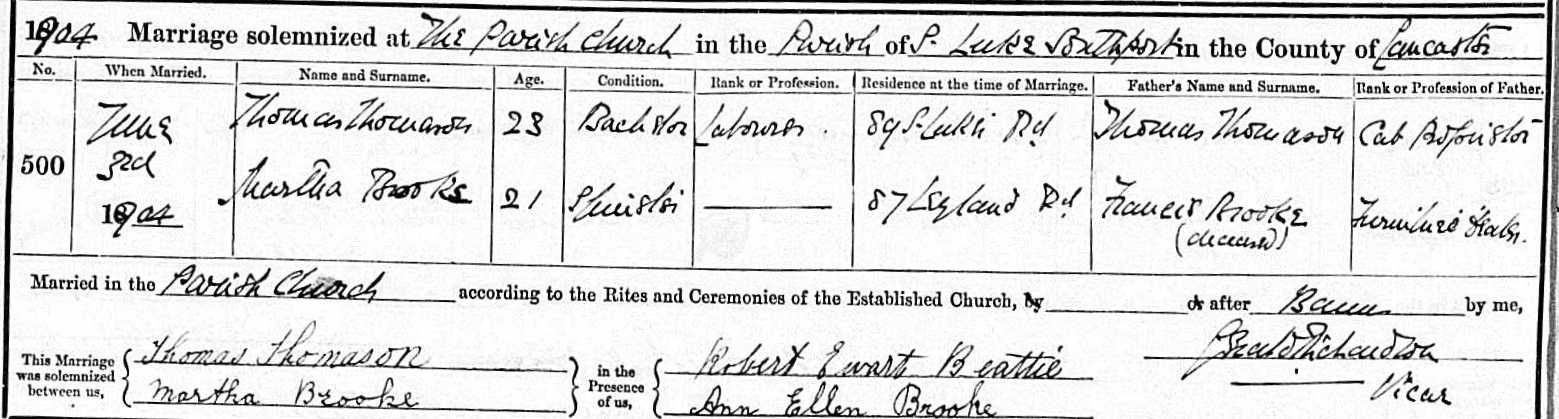 1904 Marriage solemnized at The Parish Church in the Parish of S. Luke Southport in the County of Lancaster
No. When Married. Name and Surname. Age. Condition. Rank or Profession. Residence at the time of Marriage. Father's Name and Surname. Rank or Profession of Father.
June Thomas Thomason 23 Bachelor Labourer. 89 S. Luke's Rd Thomas Thomason Cab Proprietor
500 3rd
Martha Brooke 21 Spinster 87 Leyland Rd Francis Brooke Furniture Dealer.
1904 (deceased)
Married in the Parish Church according to the Rites and Ceremonies of the Established Church, by or after Banns by me,
This Marriage was solemnized between us, Thomas Thomason in the Presence of us, Robert Ewart Beattie Gerald Richardson
Martha Brooke Ann Ellen Brooke Vicar